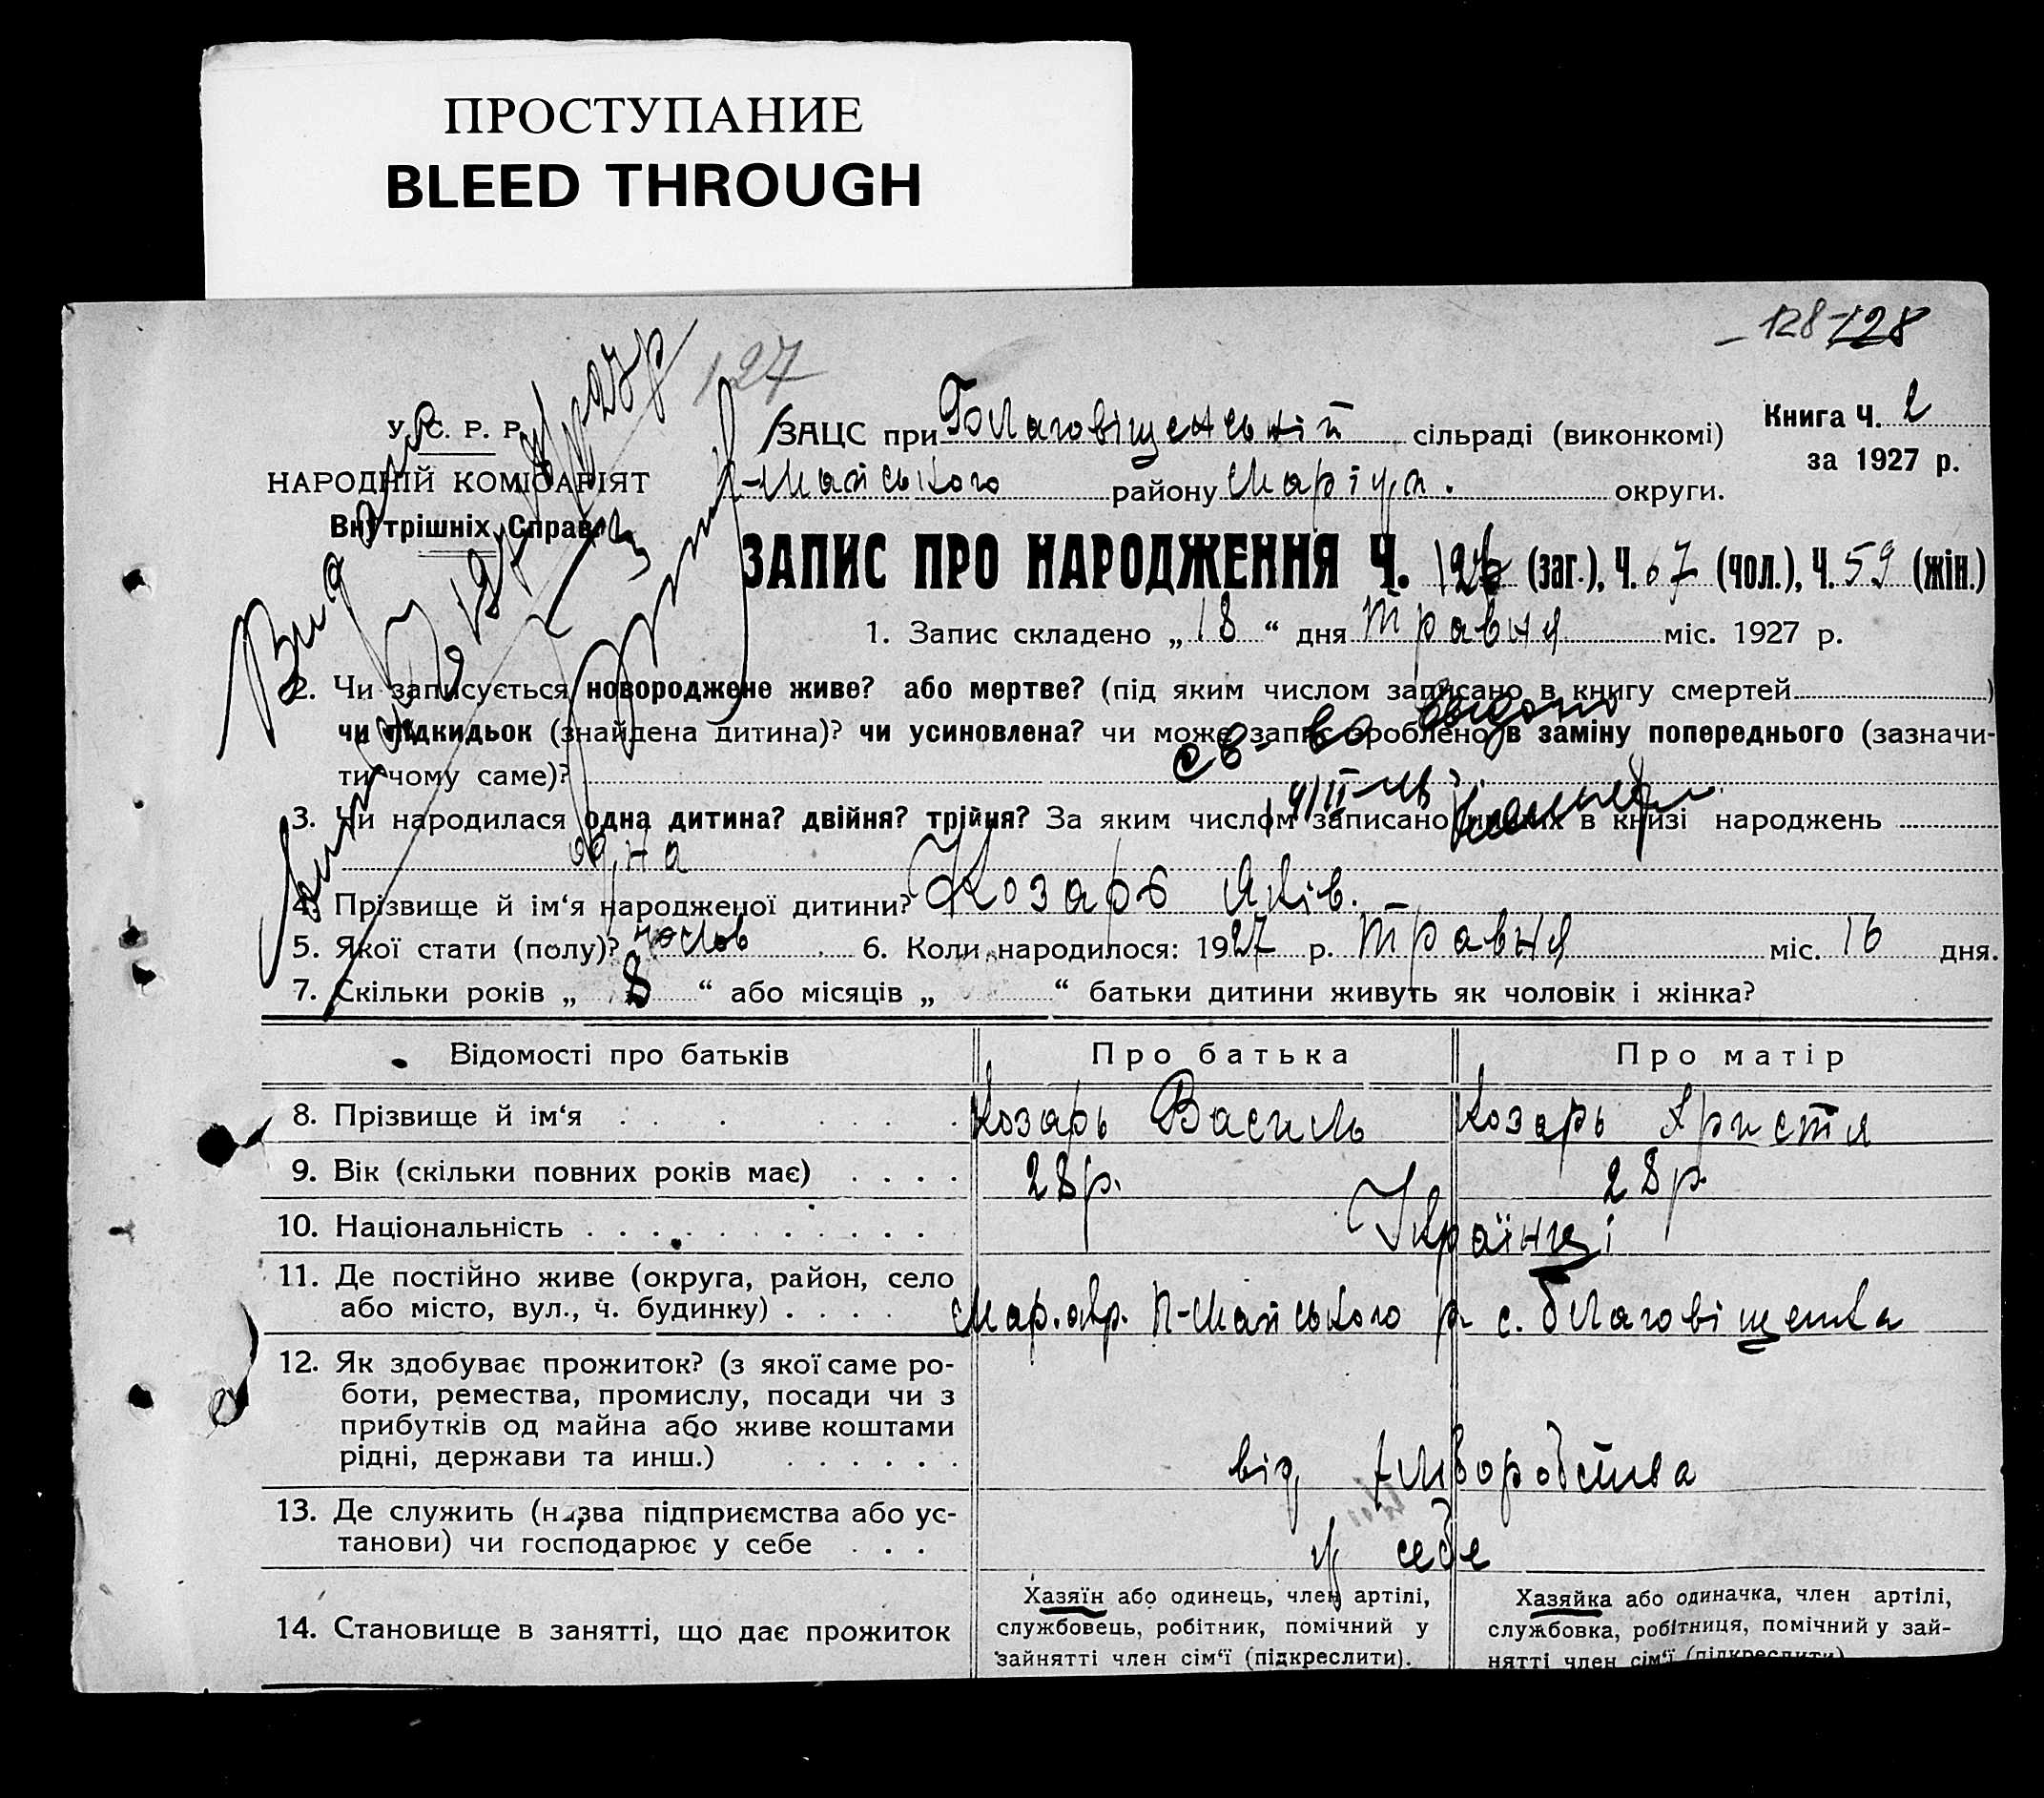 ПРОСТУПАНИЕ
BLEED THROUGH
128 128
127
У. С. Р. Р.
НАРОДНІЙ КОМІСАРІЯТ
Внутрішніх Справ
ЗАЦС при Благовіщенській сільраді (виконкомі)
Книга Ч. 2
за 1927 р.
П-Майського району Маріуп. округи.
ЗАПИС ПРО НАРОДЖЕННЯ Ч. 126 (заг.), Ч. 67 (чол.), Ч. 59 (жін.)
1. Запис складено „18“ дня Травня міс. 1927 р.
2. Чи записується новороджене живе? або мертве? (під яким числом записано в книгу смертей )
чи підкидьок (знайдена дитина)? чи усиновлена? чи може запис зроблено в заміну попереднього (зазначи-
ти чому саме)?
3. Чи народилася одна дитина? двійня? трійня? За яким числом записано инших в книзі народжень
одна
4. Прізвище й ім‘я народженої дитини? Козарь Яків.
5. Якої стати (полу)? чолов 6. Коли народилося: 1927 р. Травня міс. 16 дня.
7. Скільки років „ 8 “ або місяців „ “ батьки дитини живуть як чоловік і жінка?
Відомості про батьків Про батька Про матір
8. Прізвище й ім‘я Козарь Василь Козарь Христя
9. Вік (скільки повних років має) 28р. 28р.
10. Національність Українці
11. Де постійно живе (округа, район, село
або місто, вул., ч. будинку) Мар.окр. П-Майського р. с. Благовіщенка
12. Як здобуває прожиток? (з якої саме ро-
боти, ремества, промислу, посади чи з
прибутків од майна або живе коштами
рідні, держави та инш.) від хліборобства
13. Де служить (назва підприємства або ус-
танови) чи господарює у себе у себе
14. Становище в занятті, що дає прожиток
Хазяїн або одинець, член артілі,
службовець, робітник, помічний у
зайнятті член сім‘ї (підкреслити).
Хазяйка або одиначка, член артілі,
службовка, робітниця, помічний у зай-
нятті член сім‘ї (підкреслити)